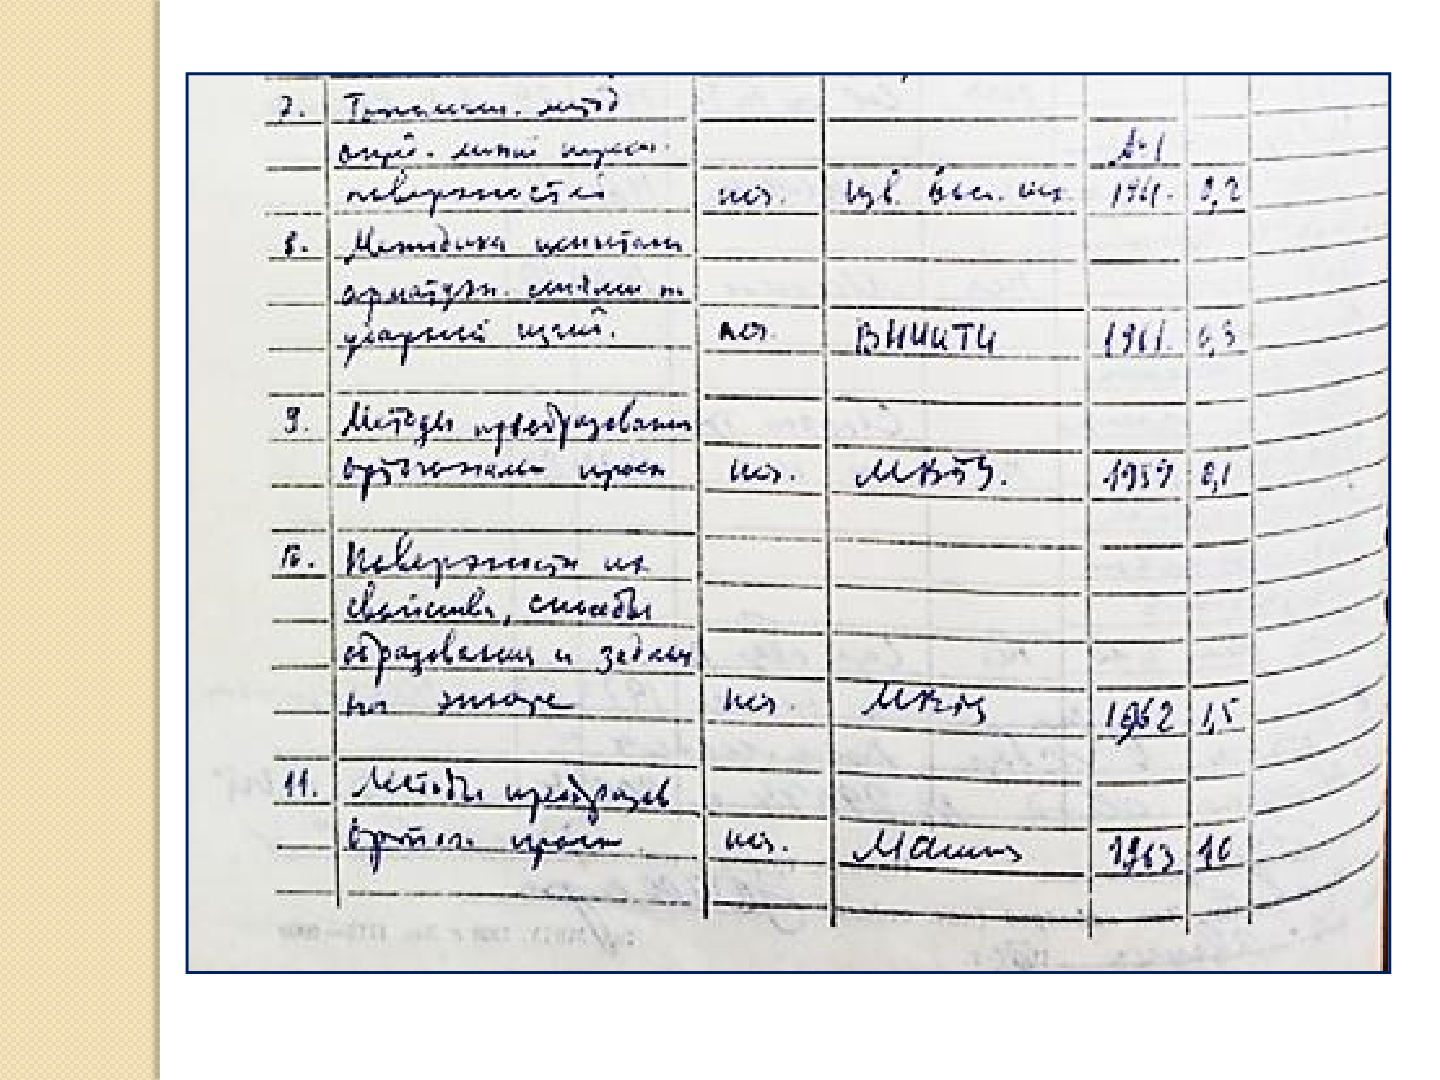 7. метод
опред. линий пересеч.
поверхностей печ. Изв. Высш. 1961. 0,2
8. Методика испытани
арматурн. стали н.
ударный изгиб. печ. ВИНИТИ 1961. 0,3
9. Методы преобразовани
ортогональн проек печ. МВТУ. 1959 0,1
10. Поверхности их
свойства, способы
образования и задан
на эпюре печ. МВТУ 1962 1,5
11. Методы преобразов
ортог. проек печ. Машгиз 1963 10